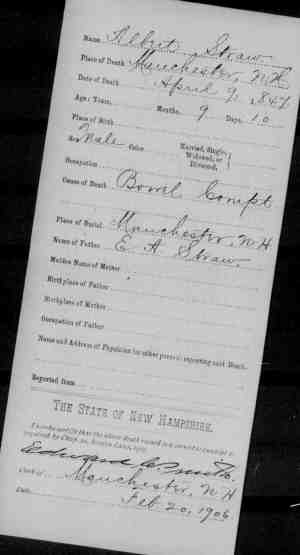 Name Albert Straw
Place of Death Manchester, N.H.
Date of Death April 9, 1847
Age: Years, Months, 9 Days, 10
Place of Birth
Sex Male Color Married, Single, Widowed, or Divorced,
Occupation
Cause of Death Bowel Complt
Place of Burial Manchester, N.H.
Name of Father E. A. Straw
Maiden Name of Mother
Birthplace of Father
Birthplace of Mother
Occupation of Father
Name and Address of Physician (or other person) reporting said Death.
Reported from
THE STATE OF NEW HAMPSHIRE.
I hereby certify that the above death record is correct to the best
Clerk of Manchester, N H
Date, Feb 20, 1906